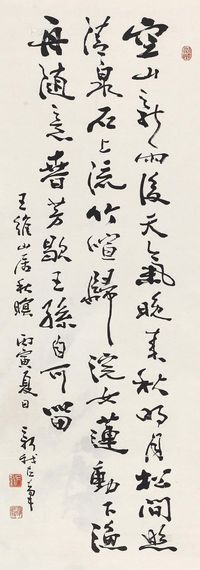 空山新雨後天氣晚來秋明月松間照
清泉石上流竹喧歸浣女蓮動下漁
舟隨意春芳歇王孫自可留
王維山居秋暝 丙寅夏日
新我左筆